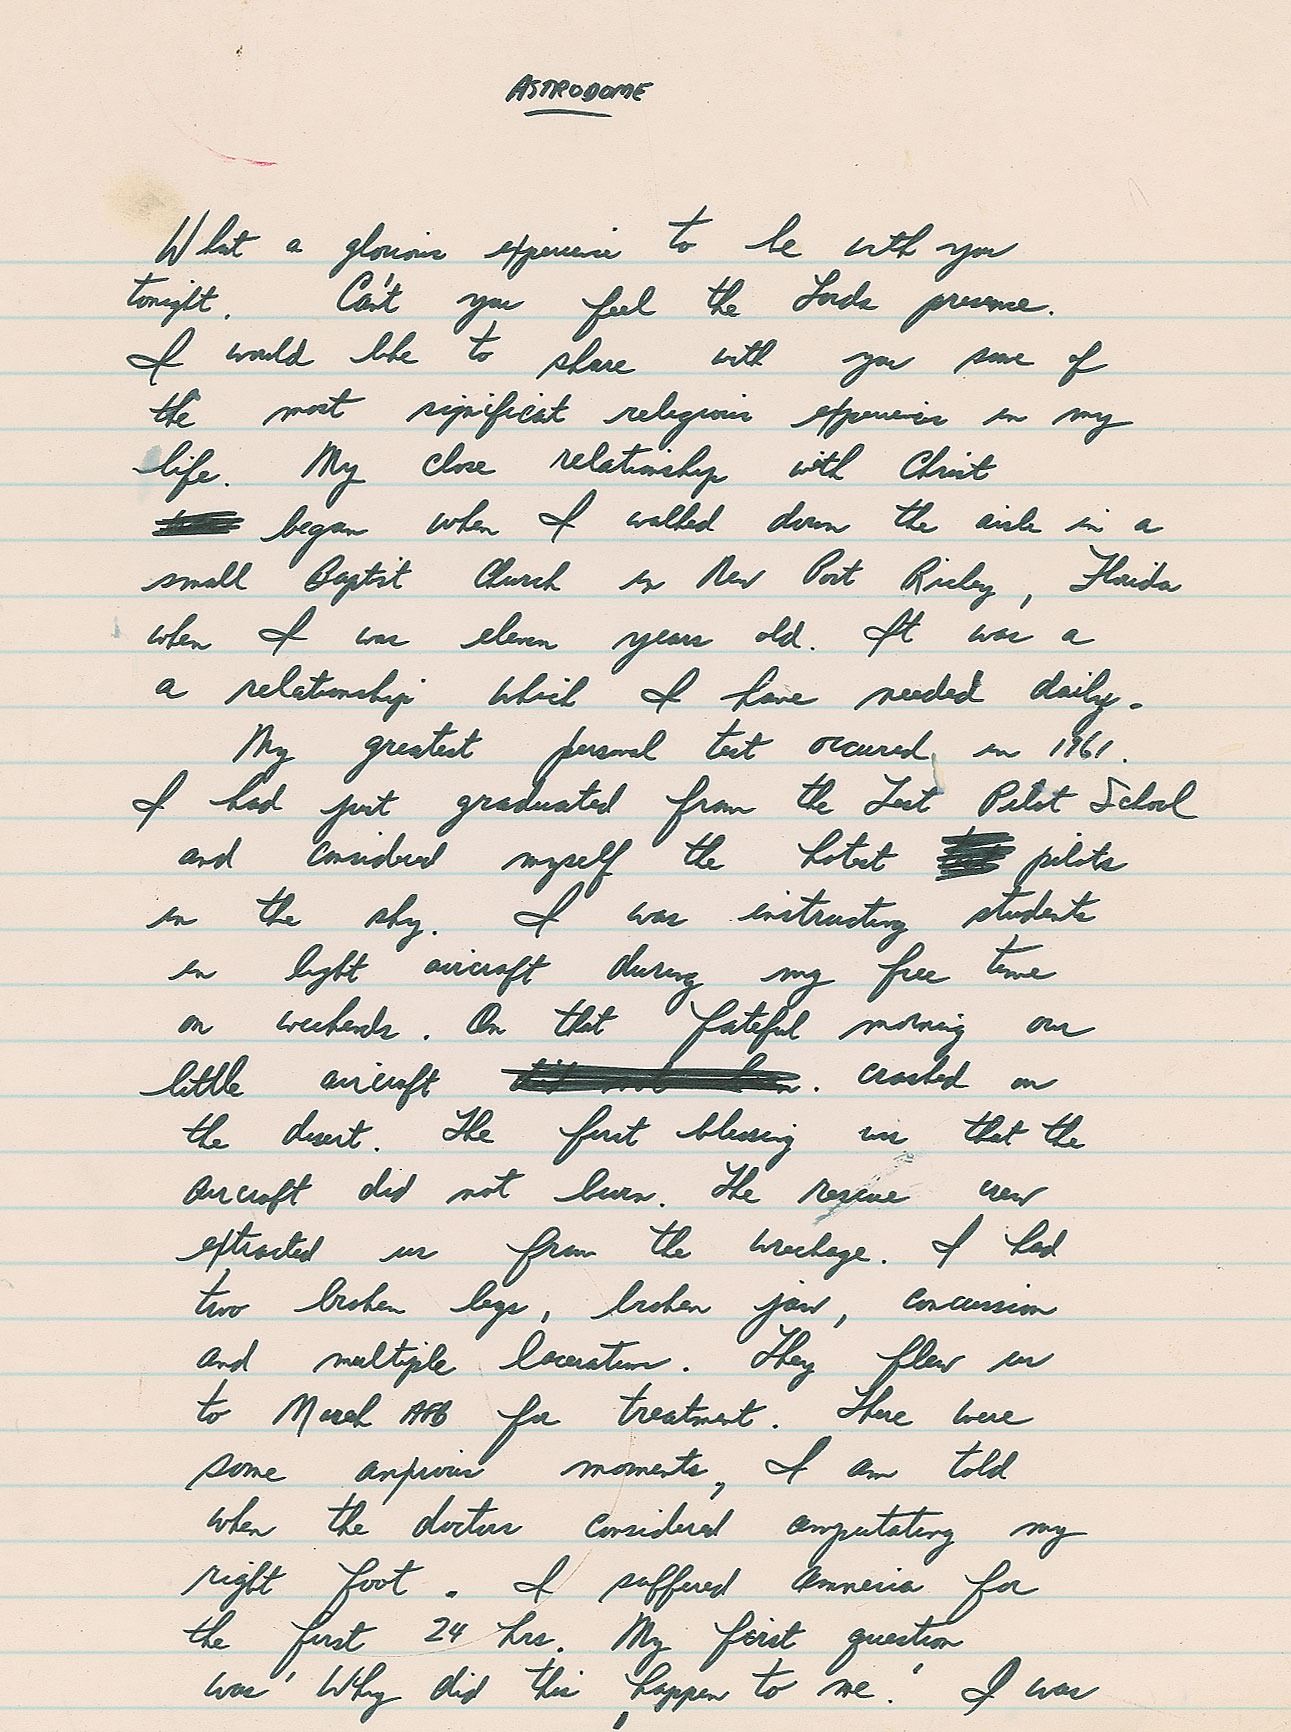 ASTRODOME
What a glorious experience to be with you
tonight. Can't you feel the Lords presence.
I would like to share with you some of
the most significat religious experiences in my
life. My close relationship with Christ
began when I walked down the aisle in a
small Baptist Church in New Port Richey, Florida
when I was eleven years old. It was a
a relationship which I have needed daily.
My greatest personal test occured in 1961.
I had just graduated from the Test Pilot School
and considered myself the hotest pilots
in the sky. I was instructing students
in light aircraft during my free time
on weekends. On that fateful morning our
little aircraft . crashed on
the desert. The first blessing was that the
aircraft did not burn. The rescue crew
extracted us from the wreckage. I had
two broken legs, broken jaw, concussion
and multiple lacerations. They flew us
to March AFB for treatment. There were
some anxious moments, I am told
when the doctors considered amputating my
right foot. I suffered amnesia for
the first 24 hrs. My first question
was 'Why did this happen to me.' I was